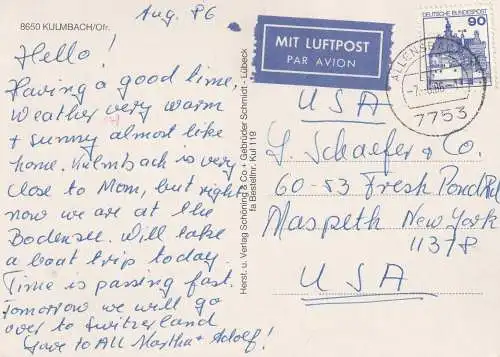 8650 KULMBACH/Ofr.
Aug. 86
Hello!
Having a good time,
weather very warm
+ sunny almost like
home. Kulmbach is very
close to Mom, but right
now we are at the
Bodensee. Will take
a boat trip today.
Time is passing fast.
Tomorrow we will go
over to Switzerland
Love to All Martha + Adolf!
Herst. u. Verlag Schöning & Co + Gebrüder Schmidt · Lübeck
Bestellnr.: Kul 119
MIT LUFTPOST
PAR AVION
DEUTSCHE BUNDESPOST
90
ALLENSBACH
7753
USA
Schaefer & Co.
60-53 Fresh Pond Rd
Maspeth New York
11378
USA